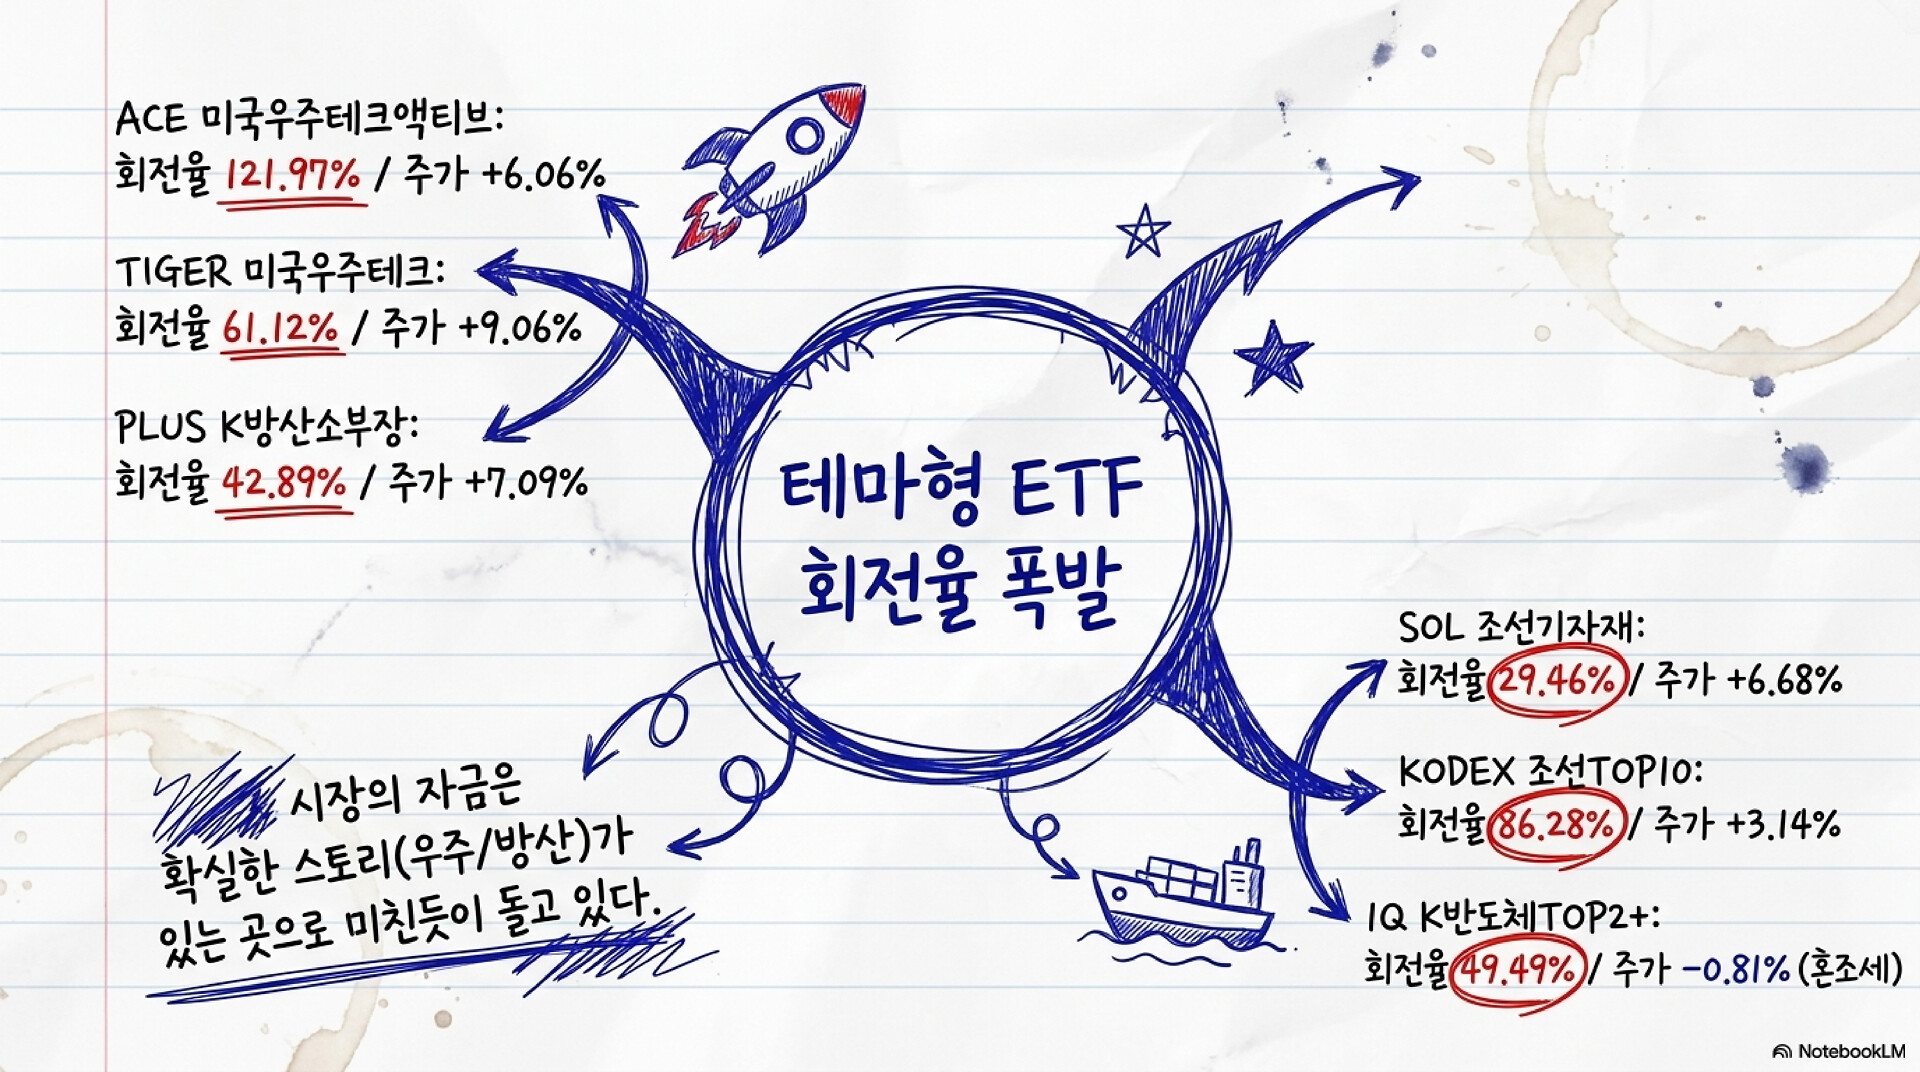 ACE 미국우주테크액티브:
회전율 121.97% / 주가 +6.06%
TIGER 미국우주테크:
회전율 61.12% / 주가 +9.06%
PLUS K방산소부장:
회전율 42.89% / 주가 +7.09%
테마형 ETF
회전율 폭발
SOL 조선기자재:
회전율 29.46% / 주가 +6.68%
KODEX 조선TOP10:
회전율 86.28% / 주가 +3.14%
IQ K반도체TOP2+:
회전율 49.49% / 주가 -0.81% (혼조세)
시장의 자금은
확실한 스토리(우주/방산)가
있는 곳으로 미친듯이 돌고 있다.
NotebookLM